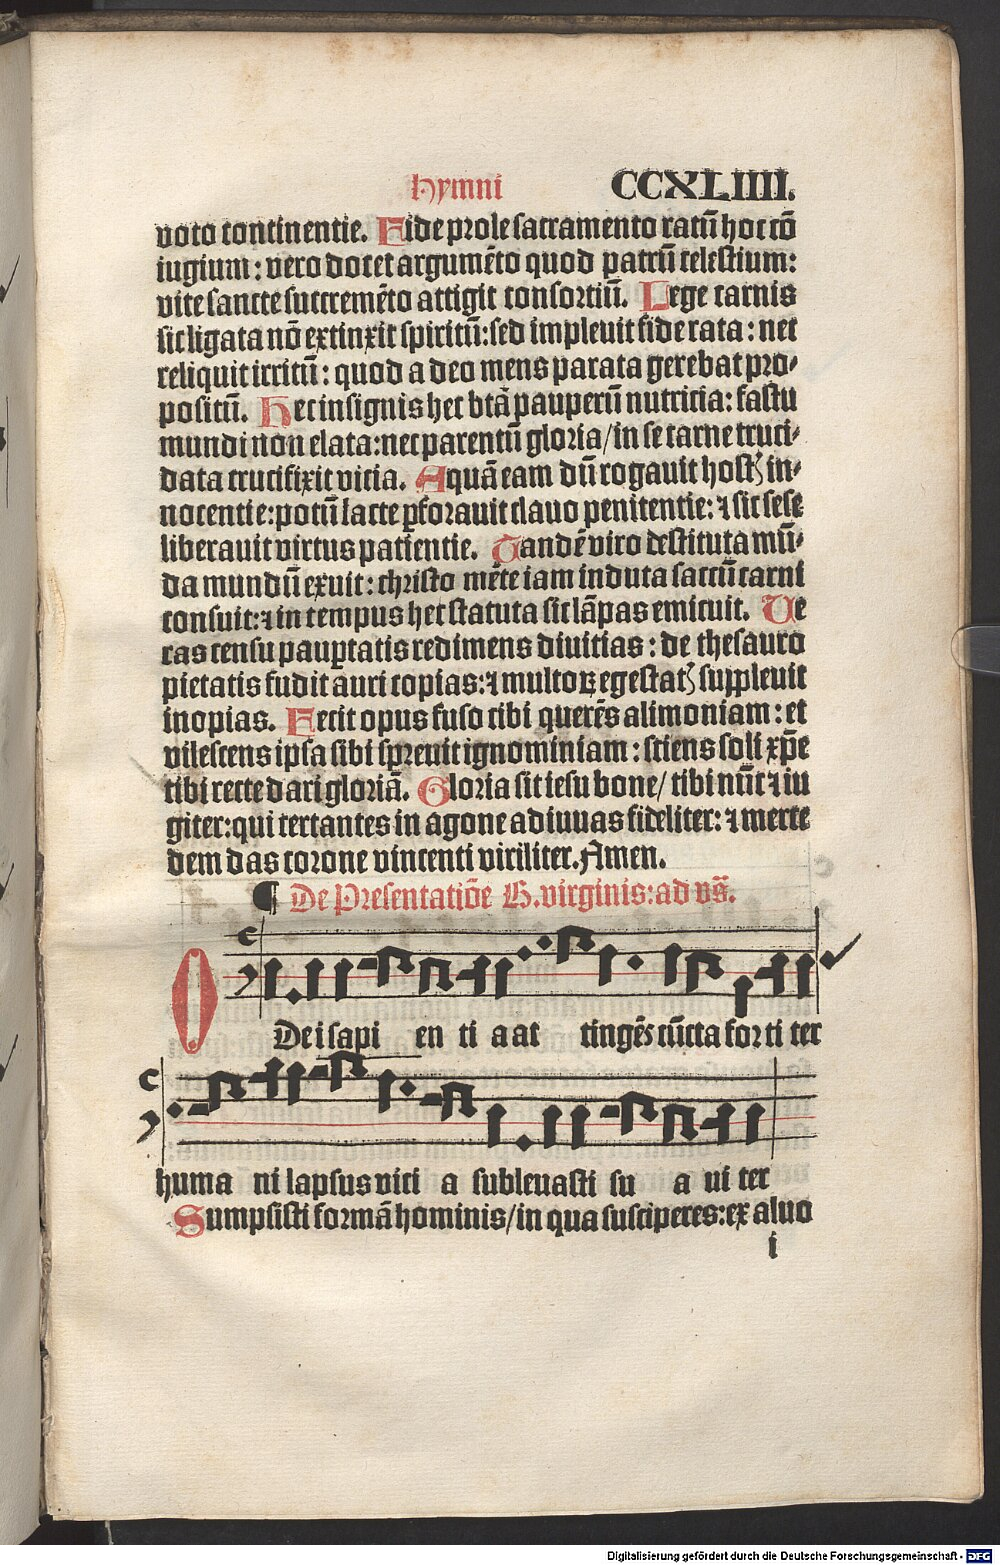 Hymni CCXLIIII.
voto continentie. Fide prole sacramento ratū hoc cō
iugium: vero docet argumēto quod patrū celestium:
vite sancte succremēto attigit consortiū. Lege carnis
sic ligata nō extinxit spiritū: sed impleuit fide rata: nec
reliquit irritū: quod a deo mens parata gerebat pro-
positū. Hec insignis hec btā pauperū nutricia: fastu
mundi non elata: nec parentū gloria/ in se carne truci-
data crucifixit vicia. Aquā eam dū rogauit hostꝫ in-
nocentie: potū lacte ꝑforauit clauo penitentie: ⁊ sic sese
liberauit virtus patientie. Tandē viro destituta mū-
da mundū exuit: christo mēte iam induta saccū carni
consuit: ⁊ in tempus hec statuta sic lāpas emicuit. Ve
ras censu pauꝑtatis redimens diuitias: de thesauro
pietatis fudit auri copias: ⁊ multoꝝ egestatꝫ suppleuit
inopias. Fecit opus fuso cibi querēs alimoniam: et
vilescens ipsa sibi spreuit ignominiam: sciens soli xp̄e
tibi recte dari gloriā. Gloria sit iesu bone/ tibi nūc ⁊ iu
giter: qui certantes in agone adiuuas fideliter: ⁊ merce
dem das corone vincenti viriliter. Amen.
¶ De Presentatiōe B. virginis: ad vs̄.
O Dei sapi en ti a at tingēs cūcta forti ter
huma ni lapsus vici a subleuasti su a ui ter
Sumpsisti formā hominis/ in qua susciperes: ex aluo
i
Digitalisierung gefördert durch die Deutsche Forschungsgemeinschaft - DFG